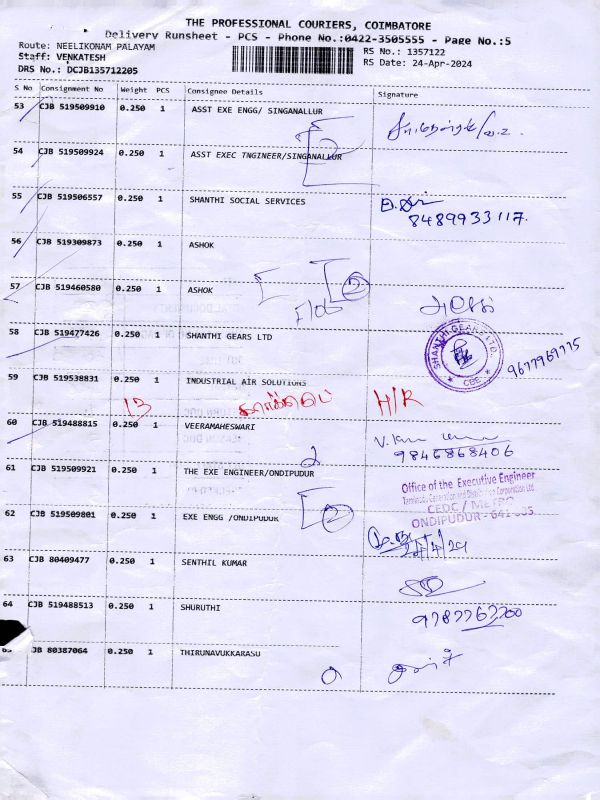 THE PROFESSIONAL COURIERS, COIMBATORE
Delivery Runsheet - PCS - Phone No.:0422-3505555 - Page No.:5
Route: NEELIKONAM PALAYAM
RS No.: 1357122
Staff: VENKATESH
RS Date: 24-Apr-2024
DRS No.: DCJB135712205
S No Consignment No Weight PCS Consignee Details Signature
53 CJB 519509910 0.250 1 ASST EXE ENGG/ SINGANALLUR
54 CJB 519509924 0.250 1 ASST EXEC TNGINEER/SINGANALLUR
2
55 CJB 519506557 0.250 1 SHANTHI SOCIAL SERVICES
8489933117.
56 CJB 519309873 0.250 1 ASHOK
57 CJB 519460580 0.250 1 ASHOK
2
58 CJB 519477426 0.250 1 SHANTHI GEARS LTD
SHANTHI GEARS LTD.
CBE
9677969775
59 CJB 519538831 0.250 1 INDUSTRIAL AIR SOLUTIONS
13 H/R
60 CJB 519488815 0.250 1 VEERAMAHESWARI
9846868406
61 CJB 519509921 0.250 1 THE EXE ENGINEER/ONDIPUDUR
2
Office of the Executive Engineer
Tamilnadu Generation and Distribution Corporation Ltd
CEDC / METRO
ONDIPUDUR - 641
62 CJB 519509801 0.250 1 EXE ENGG /ONDIPUDUR
2
24/4/24
63 CJB 80409477 0.250 1 SENTHIL KUMAR
64 CJB 519488513 0.250 1 SHURUTHI
9787763700
65 JB 80387064 0.250 1 THIRUNAVUKKARASU